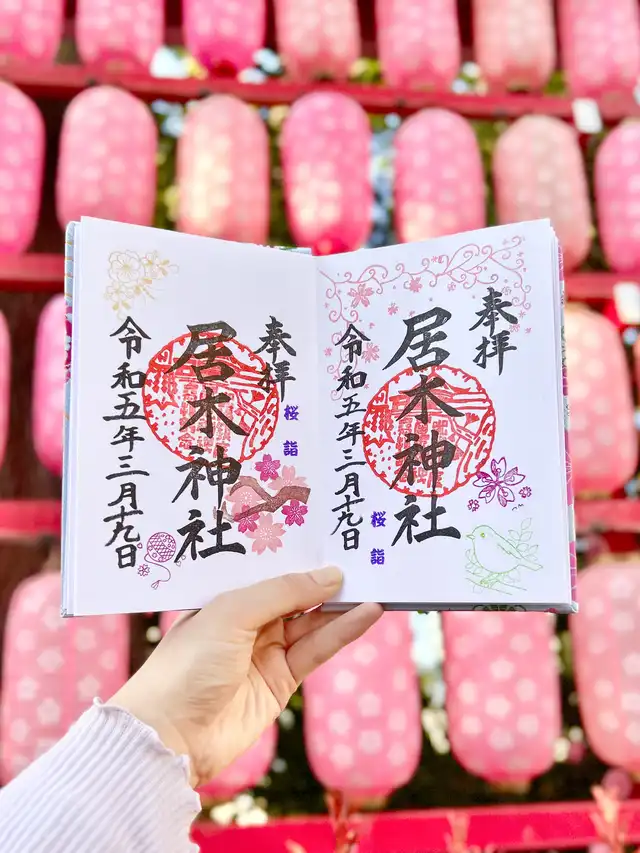 奉拝
桜詣
居木神社
令和五年三月十九日
奉拝
居木神社
桜詣
令和五年三月十九日